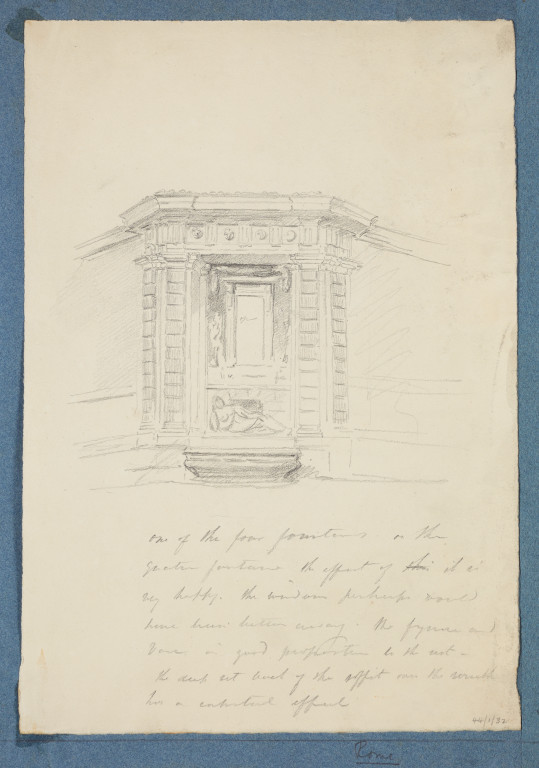 one of the four fountains or the
quatre fontane the effect of it is
very happy. the window perhaps would
have been better away. the figure and
vase in good proportion to the rest -
the deep set back of the soffit over the
has a capital effect
44/1/22
Rome